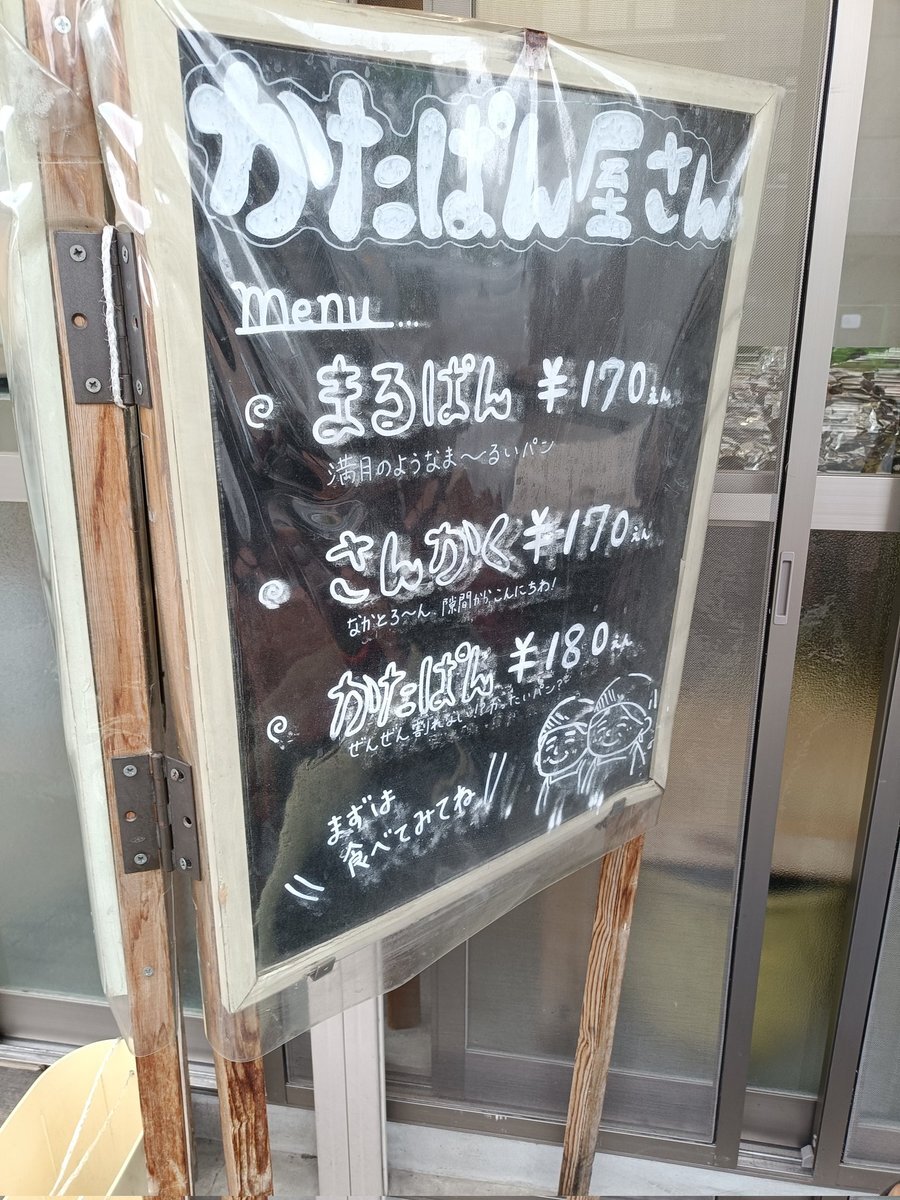 かたぱん屋さん
menu...
まるぱん ¥170えん
満月のようなま〜るいパン
さんかく ¥170えん
なかとろ〜ん 隙間からこんにちわ!
かたぱん ¥180えん
ぜんぜん割れない!?かったいパン?
まずは
食べてみてね